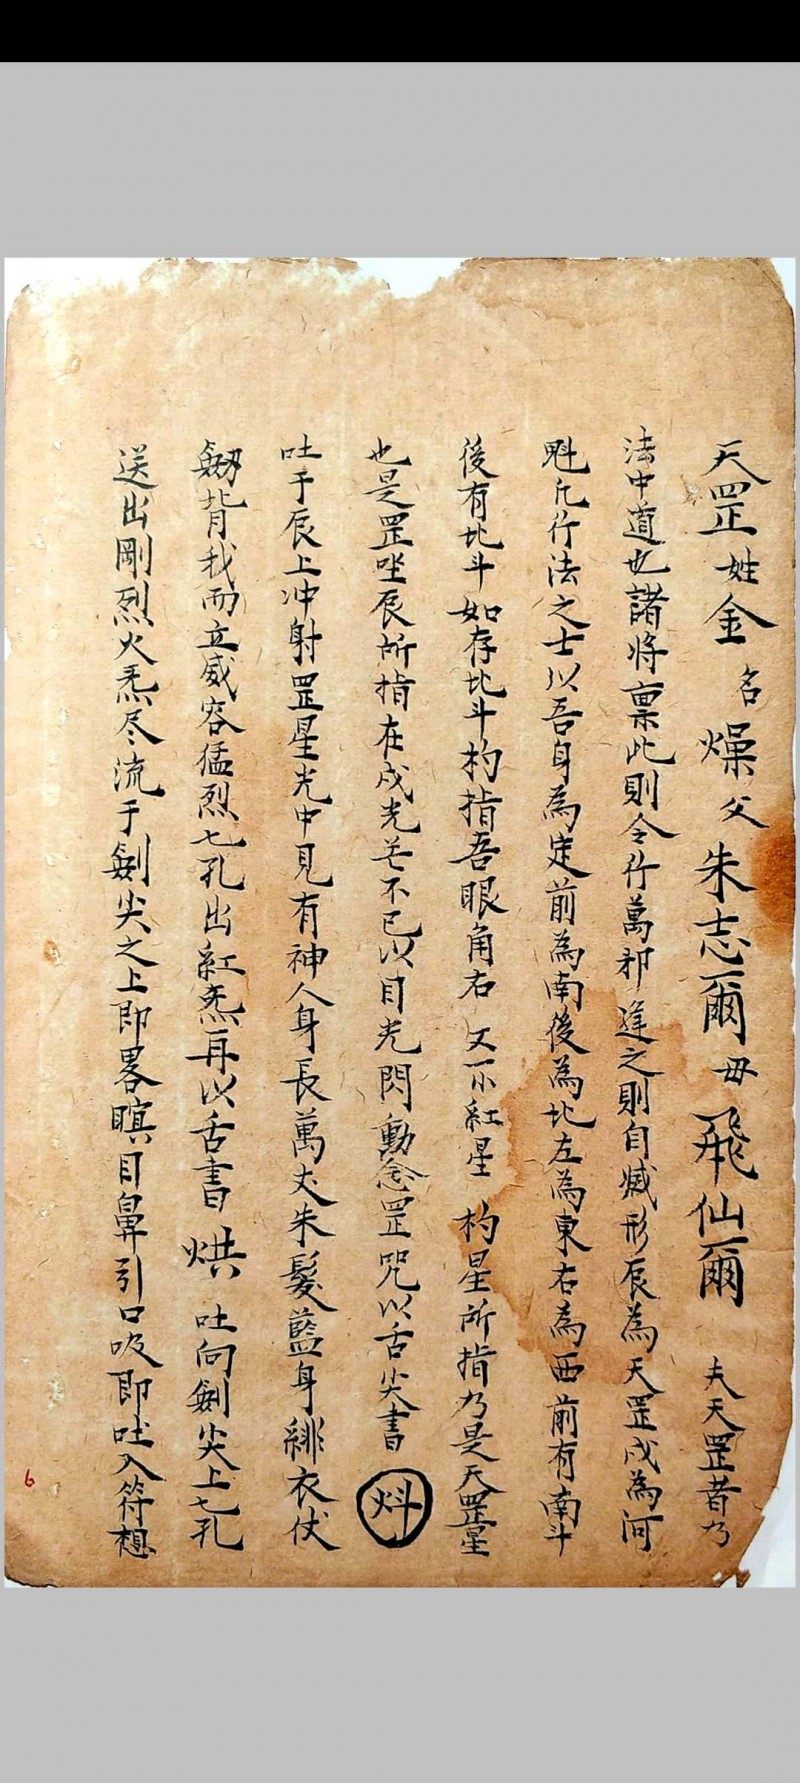 天罡姓金名燥父朱志爾母飛仙爾 夫天罡昔乃
法中道也諸将禀此則令行萬邪逢之則自滅形辰為天罡戍為河
魁凡行法之士以吾身為定前為南後為北左為東右為西前有南斗
後有北斗如存北斗杓指吾眼角右又一小紅星 杓星所指乃是天罡星
也是罡坐辰所指在戍光芒不已以目光閃動念罡咒以舌尖書㶥
吐于辰上冲射罡星光中見有神人身長萬丈朱髮藍身緋衣仗
劔背我而立威容猛烈七孔出紅炁再以舌書烘 吐向劍尖上七孔
送出剛烈火炁尽流于劍尖之上即畧瞑目鼻引口吸即吐入符想
6